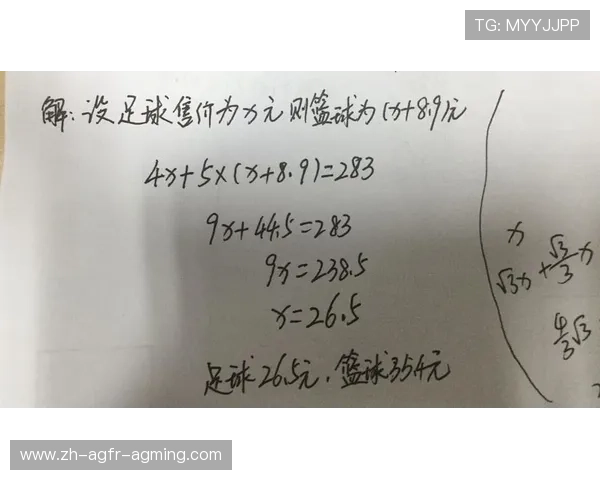 TG: MYYJJPP
解:设足球售价为x元则篮球为(x+8.9)元
4x+5×(x+8.9)=283
9x+44.5=283
9x=238.5
x=26.5
足球26.5元,篮球35.4元
x
√3x+√3/3x
4/3√3
www.zh-agfr-agming.com